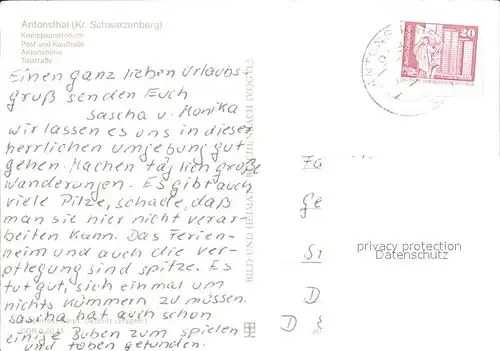 Antonsthal (Kr. Schwarzenberg)
Kneippsanatorium
Post und Kaufhalle
Antonshöhe
Talstraße
Einen ganz lieben Urlaubs-
gruß senden Euch
Sascha u. Monika
Wir lassen es uns in dieser
herrlichen Umgebung gut
gehen. Machen täglich große
Wanderungen. Es gibt auch
viele Pilze, schade, daß
man sie hier nicht verar-
beiten kann. Das Ferien-
heim und auch die Ver-
pflegung sind spitze. Es
tut gut, sich einmal um
nichts kümmern zu müssen.
Sascha hat auch schon
einige Buben zum spielen
und toben gefunden.
BILD UND HEIMAT REICHENBACH (VOGTL)
20
Fa
Ge
St
D
D
privacy protection
Datenschutz